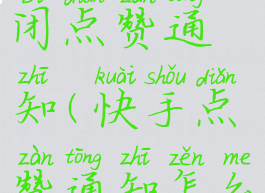 闭点赞通
zhī kuài shǒu diǎn
知(快手点
zàn tōng zhī zěn me
赞通知怎么